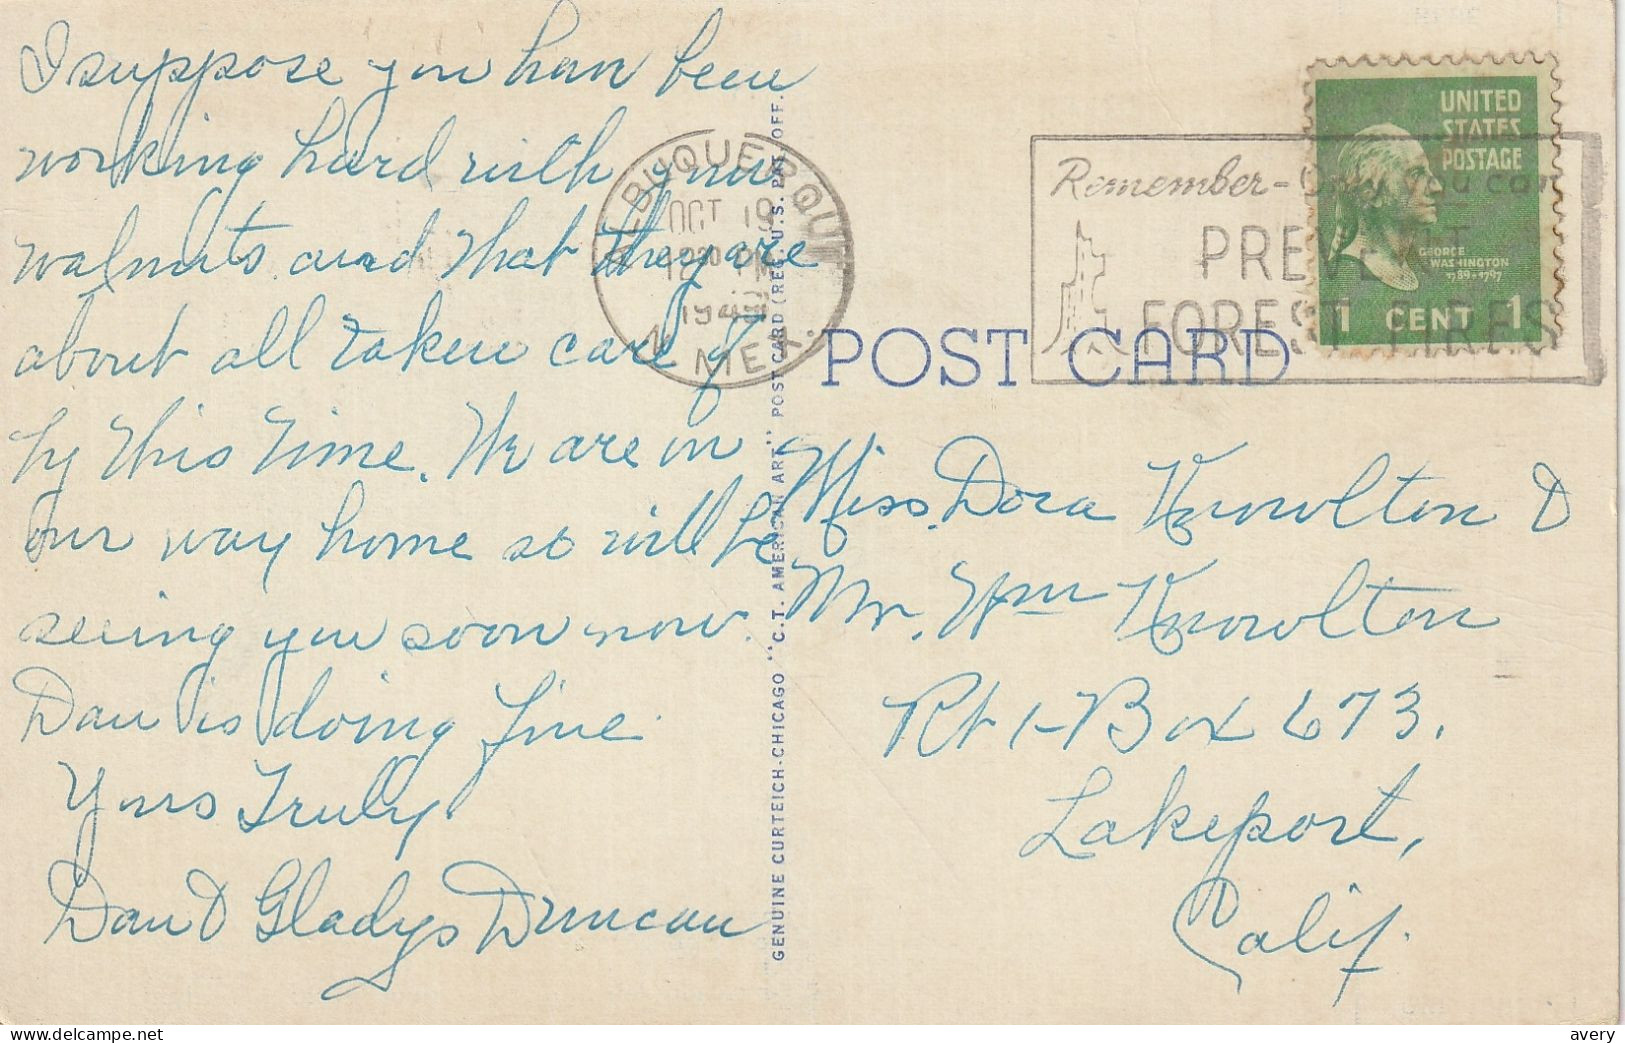 I suppose you have been
working hard with your
walnuts and that they are
about all taken care of
by this time. We are on
our way home so will be
seeing you soon now.
Dan is doing fine.
Yours Truly
Dan & Gladys Duncan
ALBUQUERQUE
OCT 19
12 30 PM
194
N. MEX.
Remember - Only you can
PREVENT
FOREST FIRES
UNITED
STATES
POSTAGE
GEORGE
WASHINGTON
1789-1797
1 CENT 1
POST CARD
GENUINE CURTEICH-CHICAGO "C.T. AMERICAN ART" POST CARD (REG. U.S. PAT. OFF.)
Miss. Dora Knowlton &
Mr. Wm Knowlton
Rt 1-Box 673.
Lakeport,
Calif.
avery
www.delcampe.net